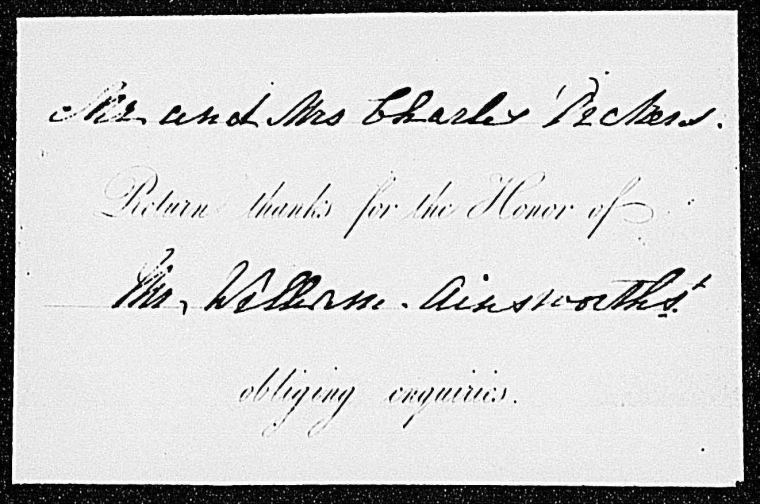 Mr and Mrs Charles Dickens.
Return thanks for the Honor of
Mr. William Ainsworth's
obliging enquiries.